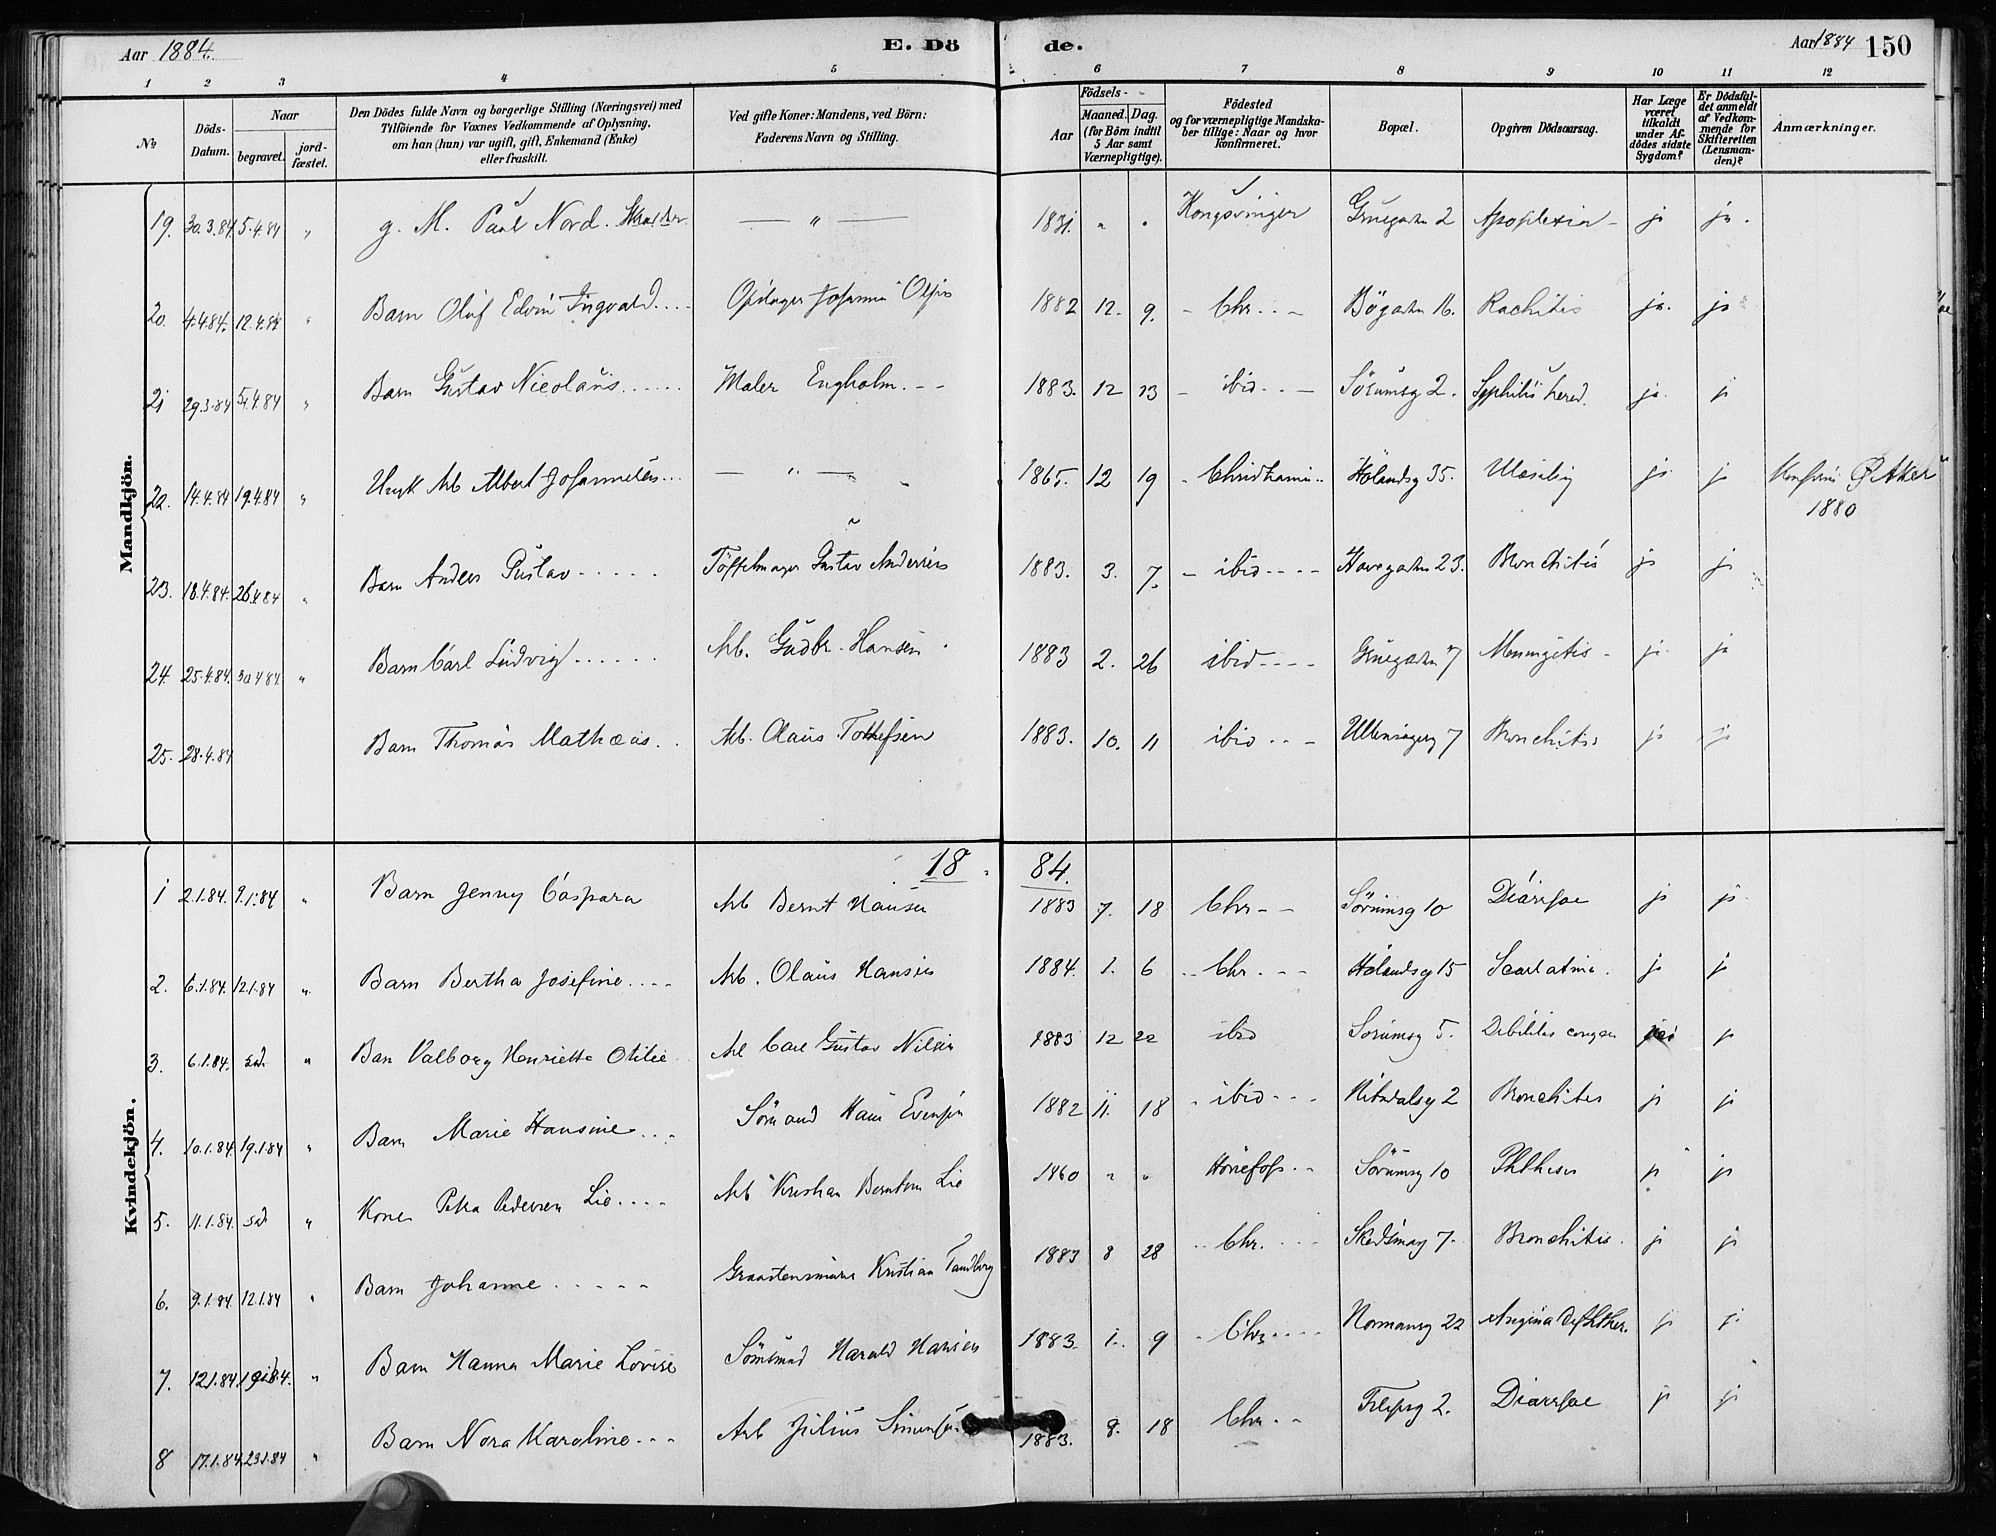 Aar 1884. E. Dö de. Aar 1884 150
1 2 3 4 5 6 7 8 9 10 11 12
No Döds-Datum. Naar begravet. jordfæstet. Den Dödes fulde Navn og borgerlige Stilling (Næringsvei) med Tilföiende for Voxnes Vedkommende af Oplysning, om han (hun) var ugift, gift, Enkemand (Enke) eller fraskilt. Ved gifte Koner: Mandens, ved Börn: Faderens Navn og Stilling. Födsels- Aar Maaned. Dag. (for Börn indtil 5 Aar samt Værnepligtige). Födested og for værnepligtige Mandskaber tillige: Naar og hvor konfirmeret. Bopæl. Opgiven Dödsaarsag. Har Læge været tilkaldt under Afdödes sidste Sygdom? Er Dödsfaldet anmeldt af Vedkommende for Skifteretten (Lensmanden)? Anmærkninger.
Mandkjön.
19. 30.3.84 5.4.84 " g. M. Paul Nord. — " — 1831. " " Kongsvinger Gruegaden 2 Apoplexia ja ja.
20. 4.4.84. 12.4.84 " Barn Oluf Edvin Ingvald.... Johanna Olsen 1882 12. 9. Chr... Bögaden 16. Rachitis ja. ja
21 29.3.84 5.4.84 " Barn Gustav Nicolaus...... Maler Engholm. -- 1883. 12 23 ibid... Sörumsg 2. Syphilis hered. ja. ja
22. 14.4.84 19.4.84 " Albert Johannesen... — " — 1865. 12 19 Christiania.. Hölandsg 35. ja ja Konfirm Ø Aker 1880
23. 18.4.84. 26.4.84 " Barn Anders Gustav ..... Töffelmager Gustav Andersen 1883. 3. 7. - ibid.... Havegaden 23. Bronchitis ja ja
24. 25.4.84. 30 4 84. " Barn Carl Ludvig...... Arb. Gudbr. Hansen 1883 2. 26 ibid.... Gruegaden 7 Meningitis - ja ja
25. 28.4.84 Barn Thomas Mathæus.. Arb. Olaus Tollefsen 1883. 10. 11 ibid... Ullensagerg 7 Bronchitis ja ja
18 84.
Kvindekjön.
1 2.1.84. 9.1.84 " Barn Jenny Caspara Arb Bernt Hansen 1883 7. 18 Chr-- Sörumsg 10 Diarrhoe ja ja
2. 6.1.84. 12.1.84 " Barn Bertha Josefine.... Arb. Olaus Hansen 1884. 1. 6 ..Chr... Hölandsg 15 Scarlatina. ja ja
3. 6.1.84. " Barn Valborg Henriette Otilie Arb Carl Gustav Nilsen 1883 12 22 ibid Sorumsg 5. Debilitas congen ja
4. 10.1.84. 19.1.84 " Barn Marie Hansine... Sömand Hans Evensen 1882 11. 18 ibid... Nitedalsg 2 Bronchitis ja ja
5. 11.1.84. " Kone Petra Pedersen Lie.... Arb Kristian Berntsen Lie 1860 " " Hönefoss.. Sörumsg 10 Phthisis ja ja
6. 9.1.84. 12.1.84 " Barn Johanne ..... Kristian Tandberg 1883 8 28 ..Chr... Skedsmog 7. Bronchitis. ja ja
7. 12.1.84. " Barn Hanna Marie Lovise Sömand Harald Hansen 1883. 1. 9 Chr.... Normansg 22 Angina diphther. ja ja
8 17.1.84. 23.1.84 " Barn Nora Karoline... Arb Julius Simensen 1883. 8. 18 Chr.. Fetsg 2. Diarrhoe ja ja